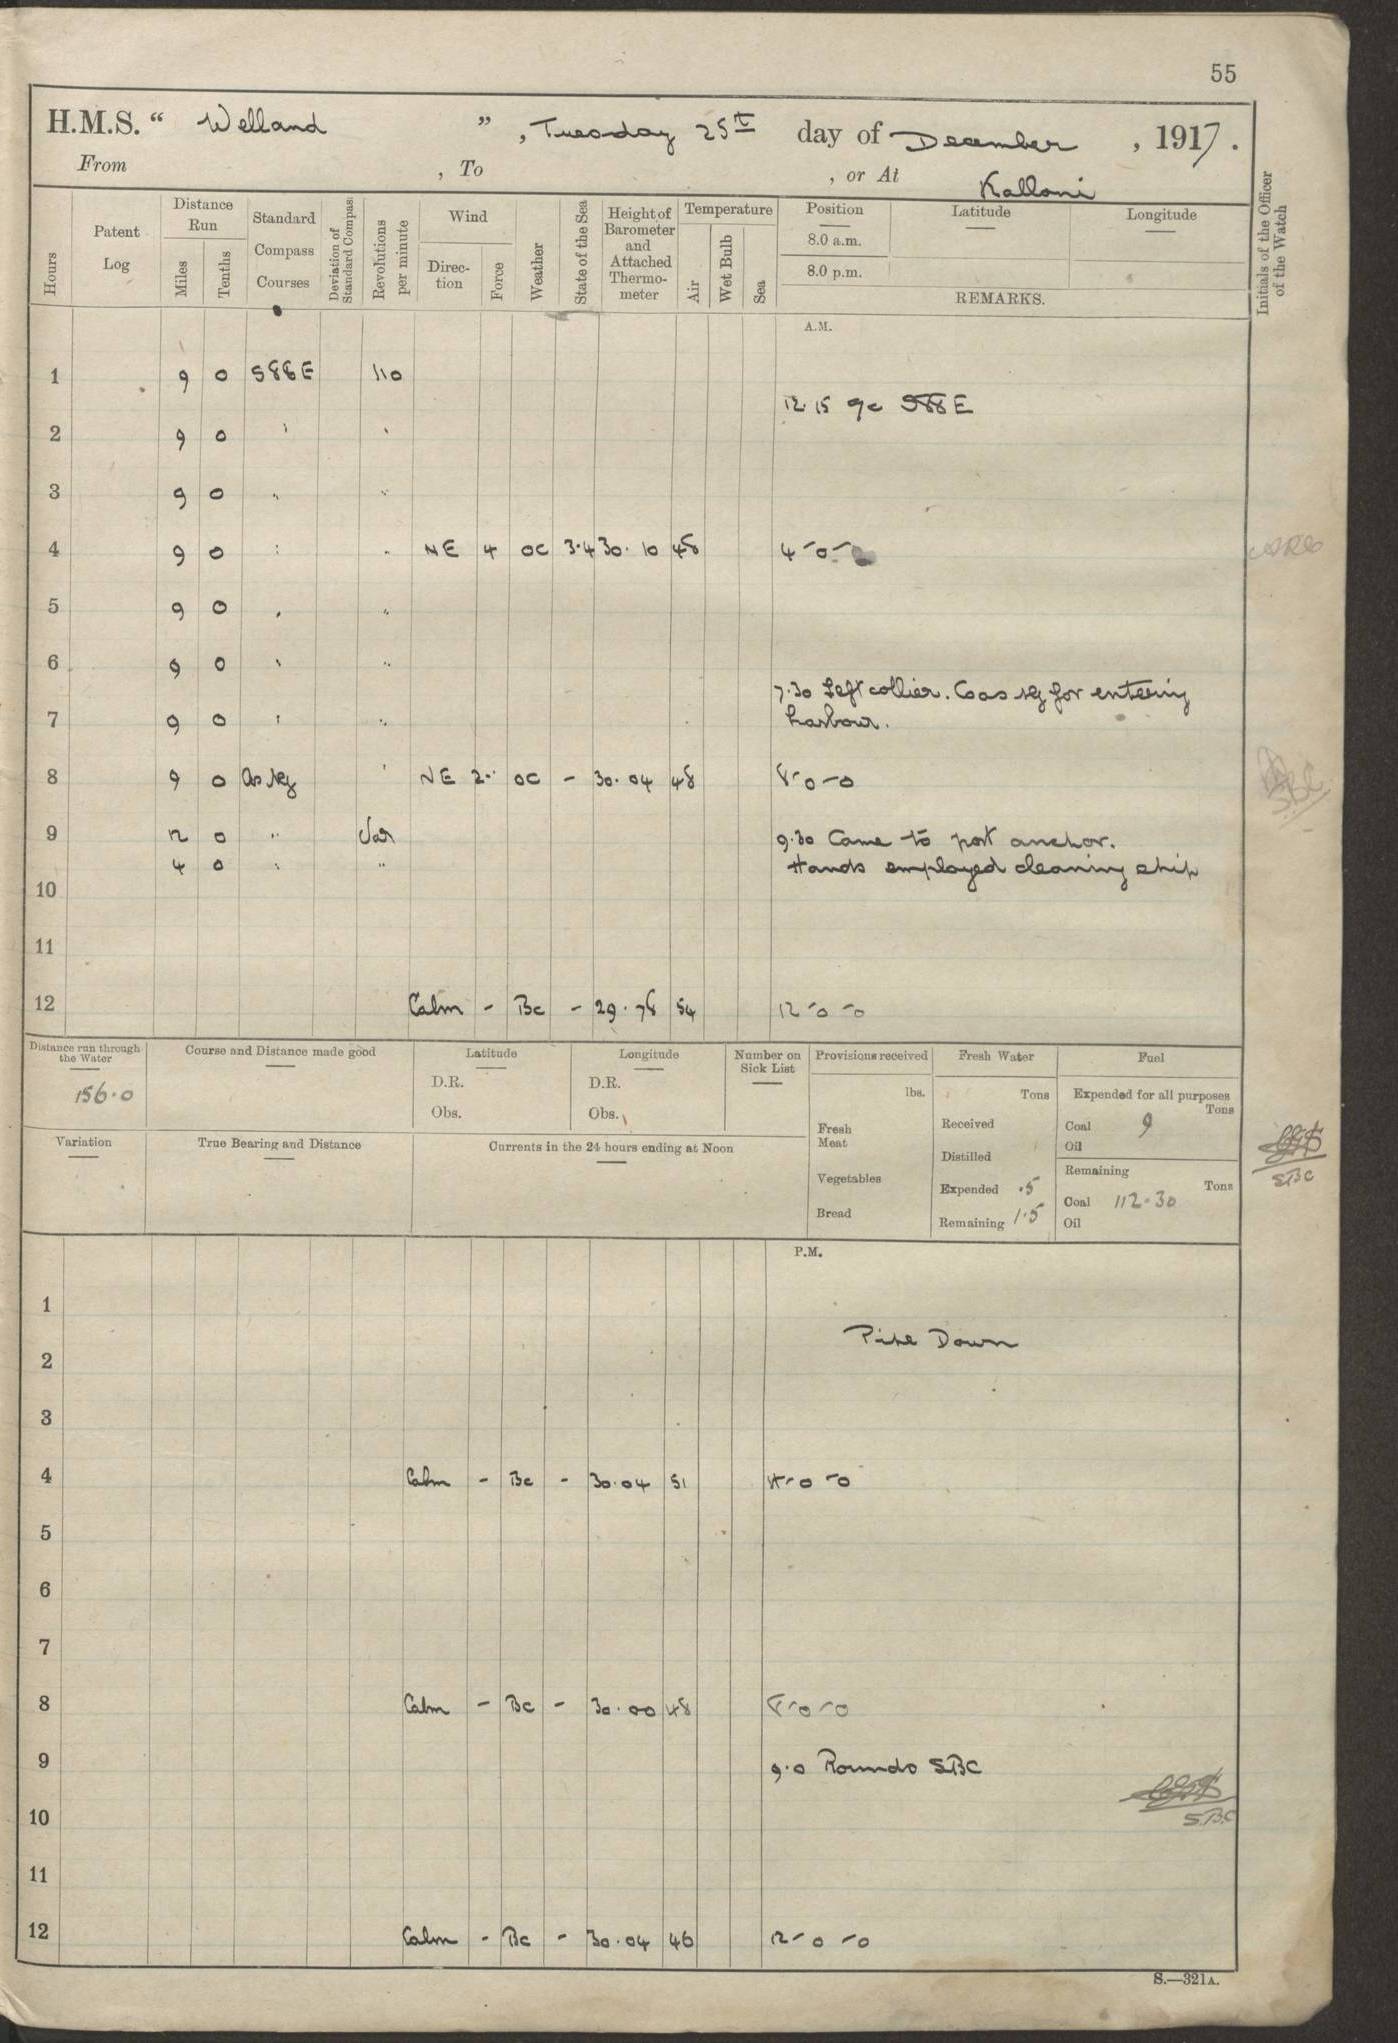 55
H.M.S. “ Welland ” , Tuesday 25th day of December , 1917.
From , To , or At Kalloni
Hours
Patent Log
Distance Run
Miles
Tenths
Standard Compass Courses
Deviation of Standard Compass
Revolutions per minute
Wind
Direc-tion
Force
Weather
State of the Sea
Height of Barometer and Attached Thermo-meter
Temperature
Air
Wet Bulb
Sea
Position
8.0 a.m.
8.0 p.m.
Latitude
Longitude
REMARKS.
Initials of the Officer of the Watch
A.M.
1 9 0 S88E 110
12.15 9c S88E
2 9 0 " "
3 9 0 " "
4 9 0 " " NE 4 OC 3.4 30.10 48 4-0-0
5 9 0 " "
6 9 0 " "
7.30 Left collier. Co as req for entering
7 9 0 " " harbour.
8 9 0 As req " NE 2 OC - 30.04 48 8-0-0
9 12 0 " Var 9.30 Came to port anchor.
4 0 " " Hands employed cleaning ship
10
11
12 Calm - Bc - 29.78 54 12-0-0
Distance run through the Water
156.0
Course and Distance made good
Latitude
D.R.
Obs.
Longitude
D.R.
Obs.
Number on Sick List
Provisions received
lbs.
Fresh Meat
Vegetables
Bread
Fresh Water
Tons
Received
Distilled
Expended .5
Remaining 1.5
Fuel
Expended for all purposes
Tons
Coal 9
Oil
Remaining
Tons
Coal 112.30
Oil
SBC
Variation
True Bearing and Distance
Currents in the 24 hours ending at Noon
P.M.
1
Pipe Down
2
3
4 Calm - Bc - 30.04 51 4-0-0
5
6
7
8 Calm - Bc - 30.00 48 8-0-0
9 9.0 Rounds SBC
10 S.B.C
11
12 Calm - Bc - 30.04 46 12-0-0
S.—321A.